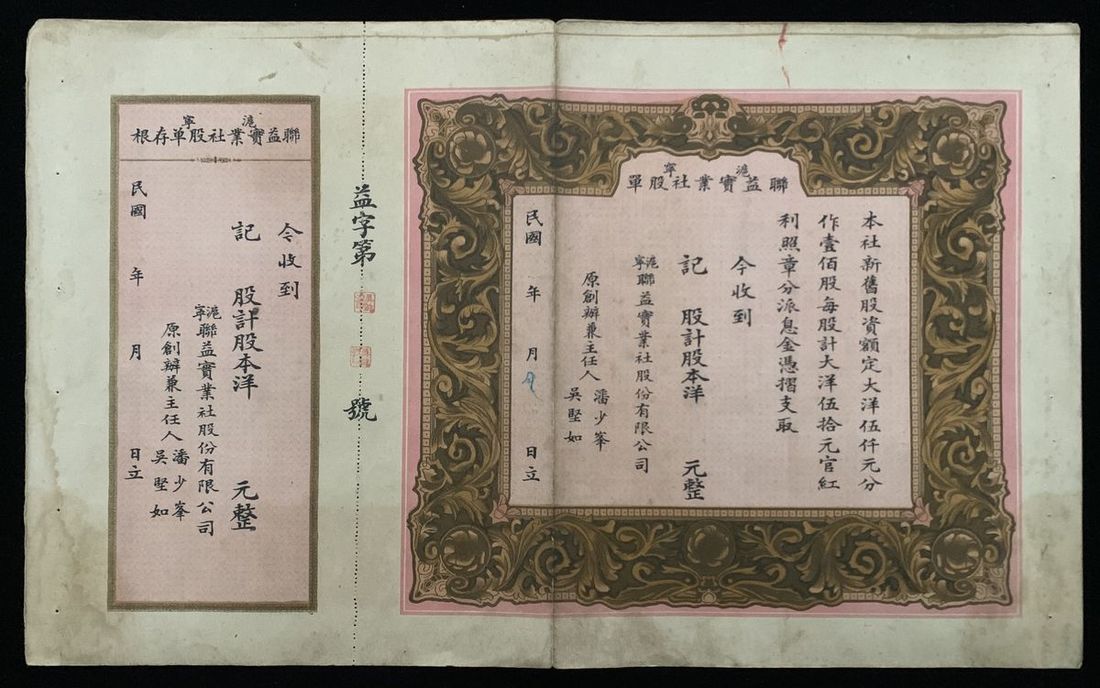 滬寧聯益實業社股單
本社新舊股資額定大洋伍仟元分
作壹佰股每股計大洋伍拾元官紅
利照章分派息金憑摺支取
今收到
記 股計股本洋 元整
滬寧聯益實業社股份有限公司
原創辦兼主任人 潘少峯 吳堅如
民國 年 月 日立
益字第 號
滬寧聯益實業社股單存根
今收到
記 股計股本洋 元整
滬寧聯益實業社股份有限公司
原創辦兼主任人 潘少峯 吳堅如
民國 年 月 日立